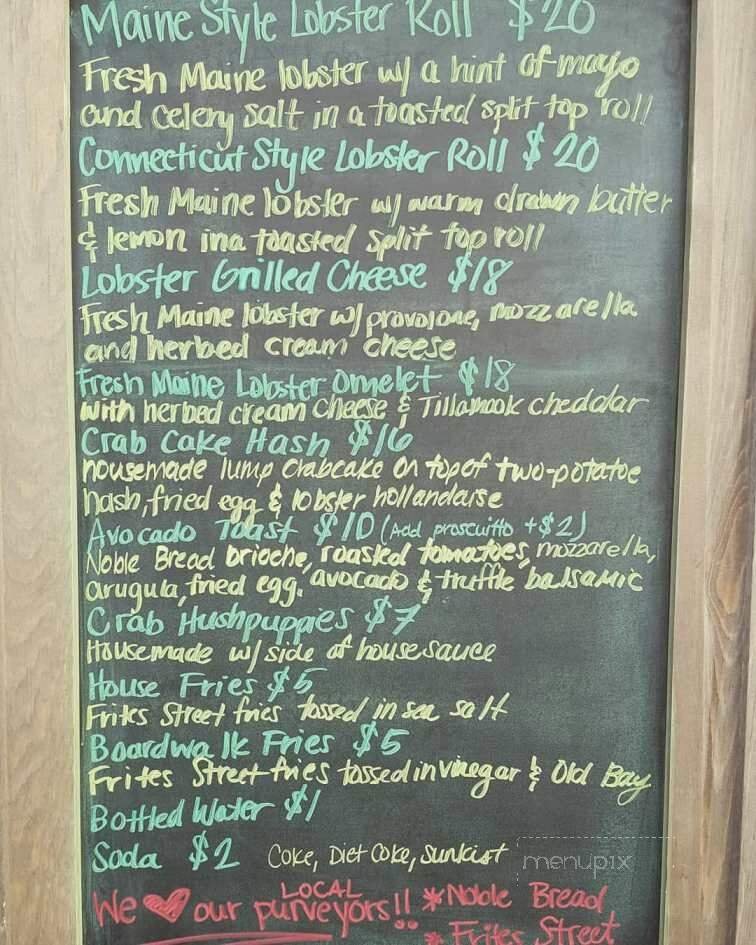 Maine Style Lobster Roll $20
Fresh Maine lobster w/ a hint of mayo
and celery salt in a toasted split top roll
Connecticut Style Lobster Roll $20
Fresh Maine lobster w/ warm drawn butter
& lemon in a toasted split top roll
Lobster Grilled Cheese $18
Fresh Maine lobster w/ provolone, mozzarella
and herbed cream cheese
Fresh Maine Lobster Omelet $18
with herbed cream cheese & Tillamook cheddar
Crab Cake Hash $16
housemade lump crabcake on top of two-potatoe
hash, fried egg & lobster hollandaise
Avocado Toast $10 (Add proscuitto +$2)
Noble Bread brioche, roasted tomatoes, mozzarella,
arugula, fried egg, avocado & truffle balsamic
Crab Hushpuppies $7
Housemade w/ side of house sauce
House Fries $5
Frites Street fries tossed in sea salt
Boardwalk Fries $5
Frites Street fries tossed in vinegar & Old Bay
Bottled Water $1
Soda $2 Coke, Diet Coke, Sunkist
menupix
We ♥ our LOCAL purveyors!! *Noble Bread
* Frites Street